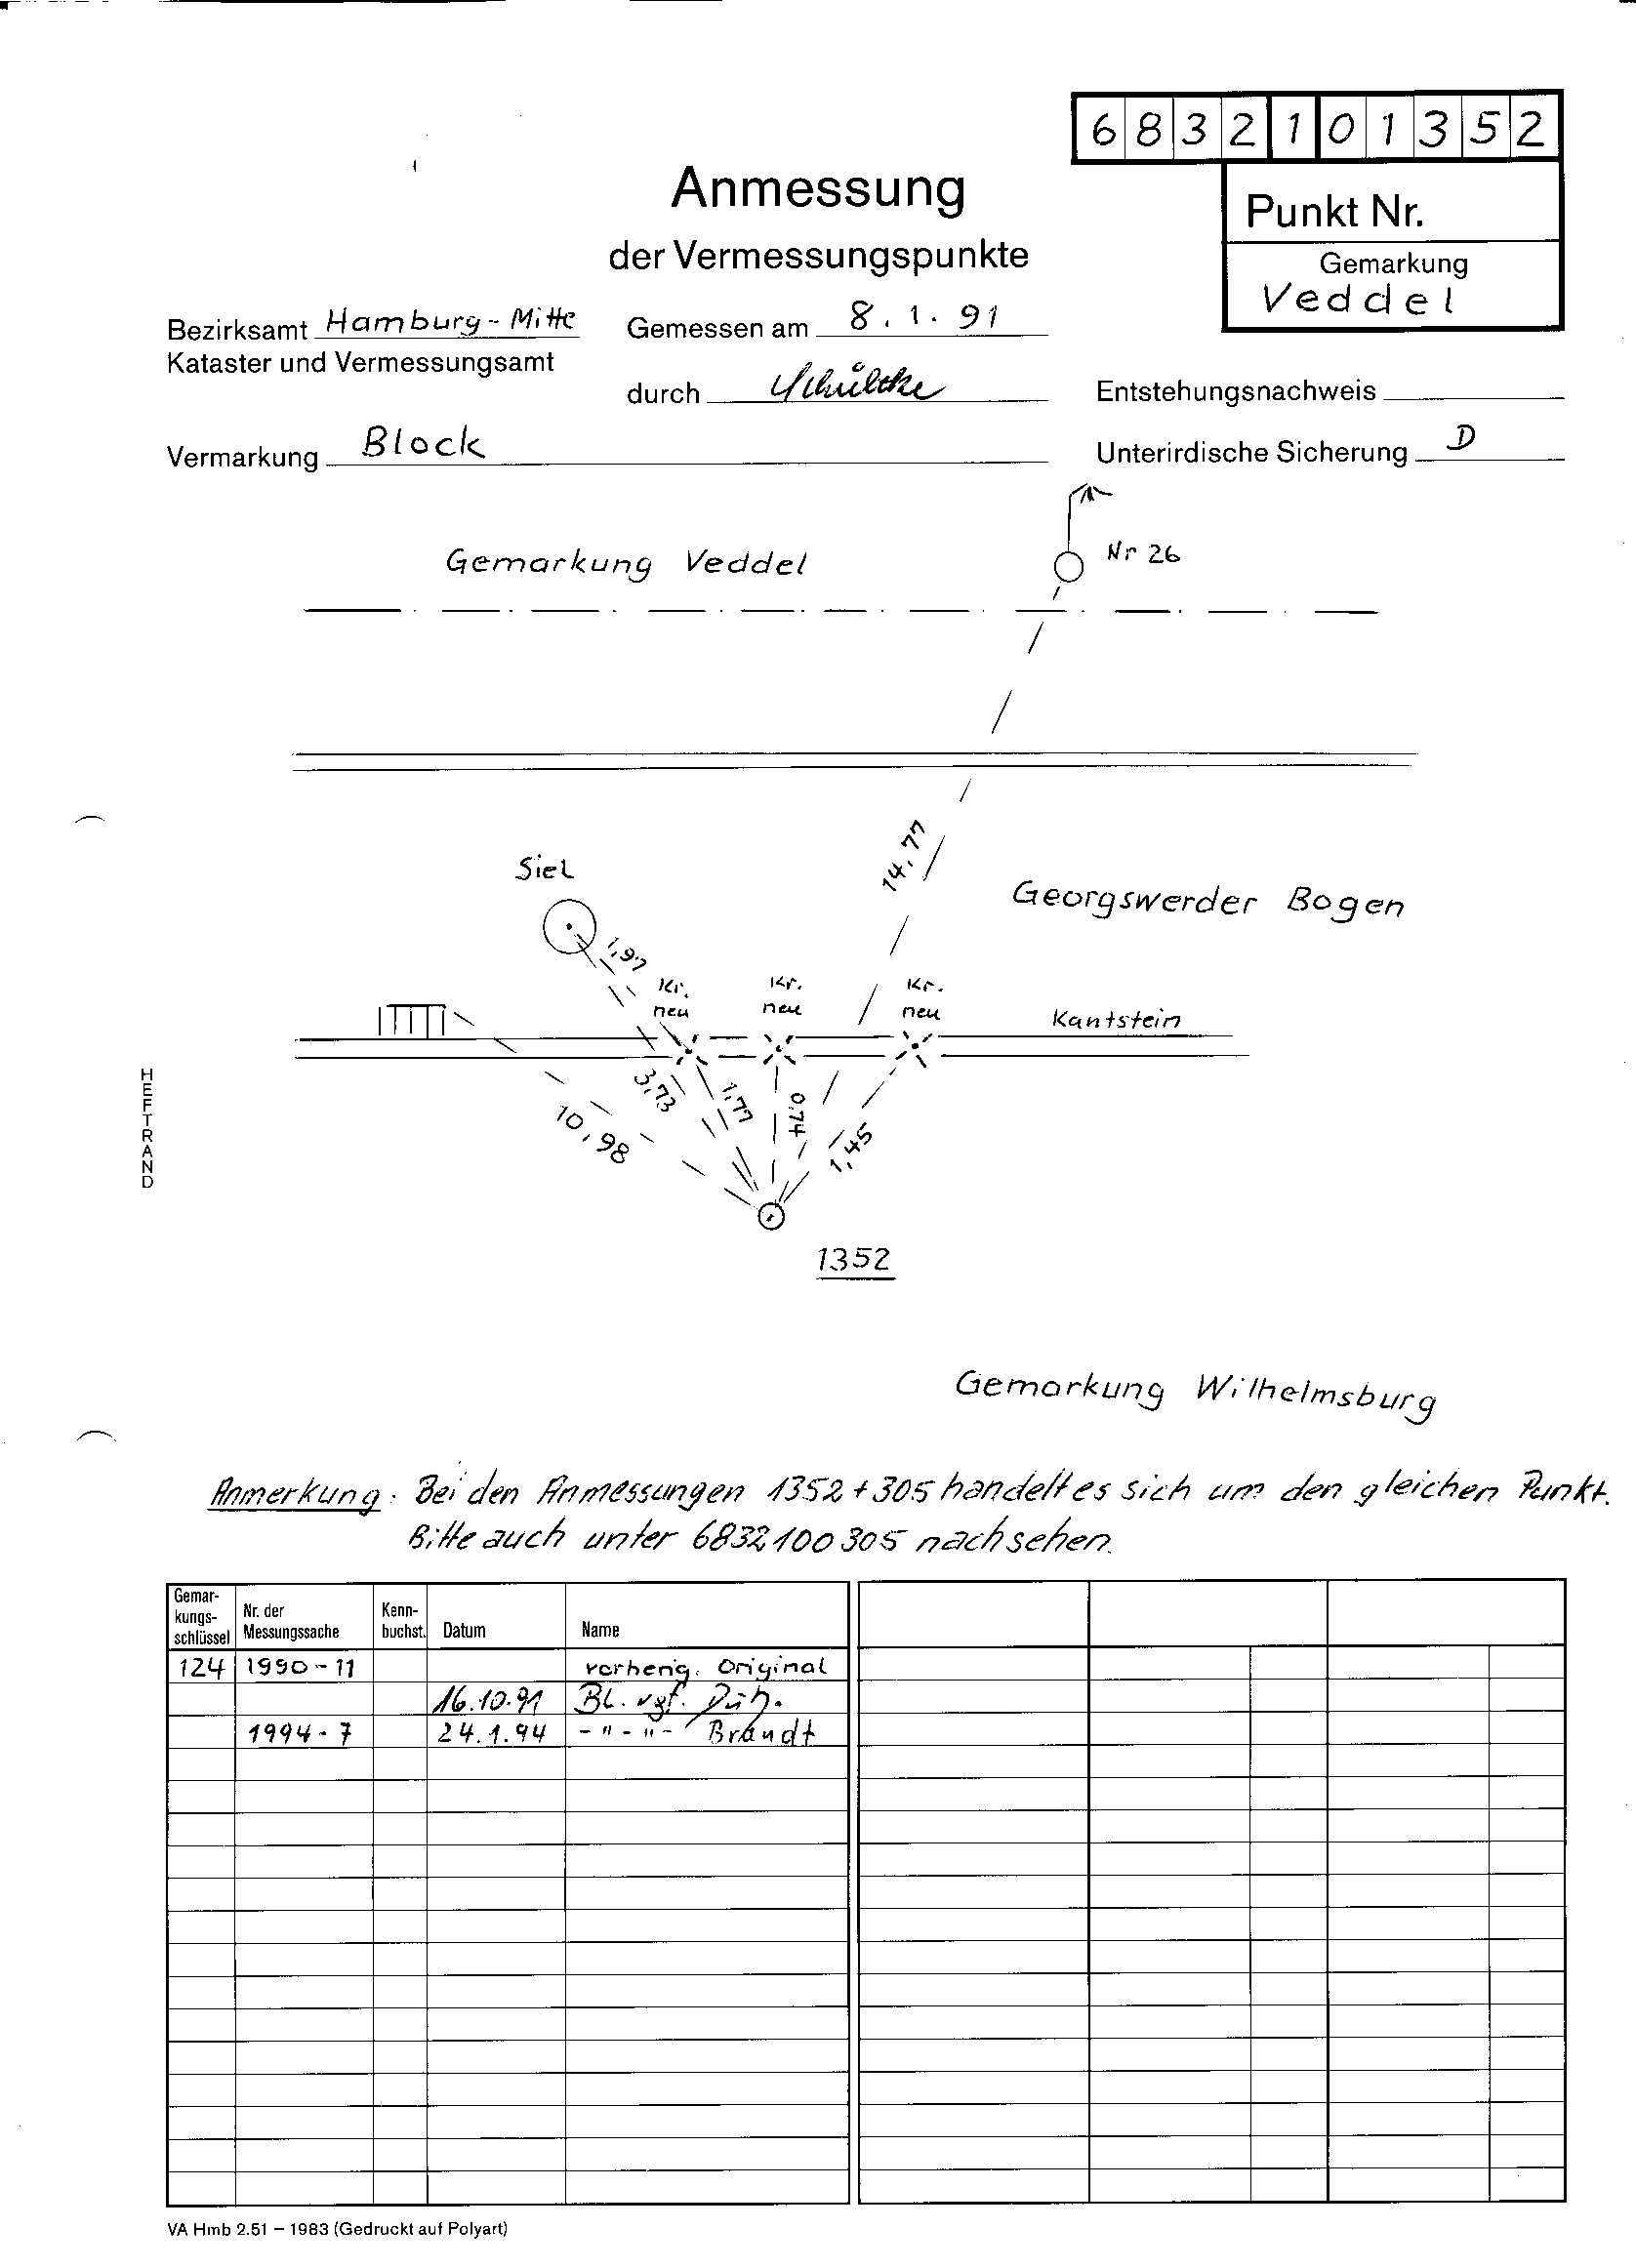 6832101352
Anmessung
der Vermessungspunkte
Punkt Nr.
Gemarkung
Veddel
Bezirksamt Hamburg-Mitte
Kataster und Vermessungsamt
Gemessen am 8.1.91
durch
Entstehungsnachweis
Vermarkung Block
Unterirdische Sicherung D
Gemarkung Veddel
Nr 26
14,77
Siel
Georgswerder Bogen
1,97
Kr. neu
Kr. neu
Kr. neu
Kantstein
3,73
1,77
0,74
1,45
10,98
HEFTRAND
1352
Gemarkung Wilhelmsburg
Anmerkung: Bei den Anmessungen 1352+305 handelt es sich um den gleichen Punkt.
Bitte auch unter 6832100305 nachsehen.
Gemar-
kungs-
schlüssel
Nr. der
Messungssache
Kenn-
buchst.
Datum
Name
124 1990-11 vorherig. Original
16.10.91 Bl. vgf.
1994-7 24.1.94 -"-"- Brandt
VA Hmb 2.51 – 1983 (Gedruckt auf Polyart)